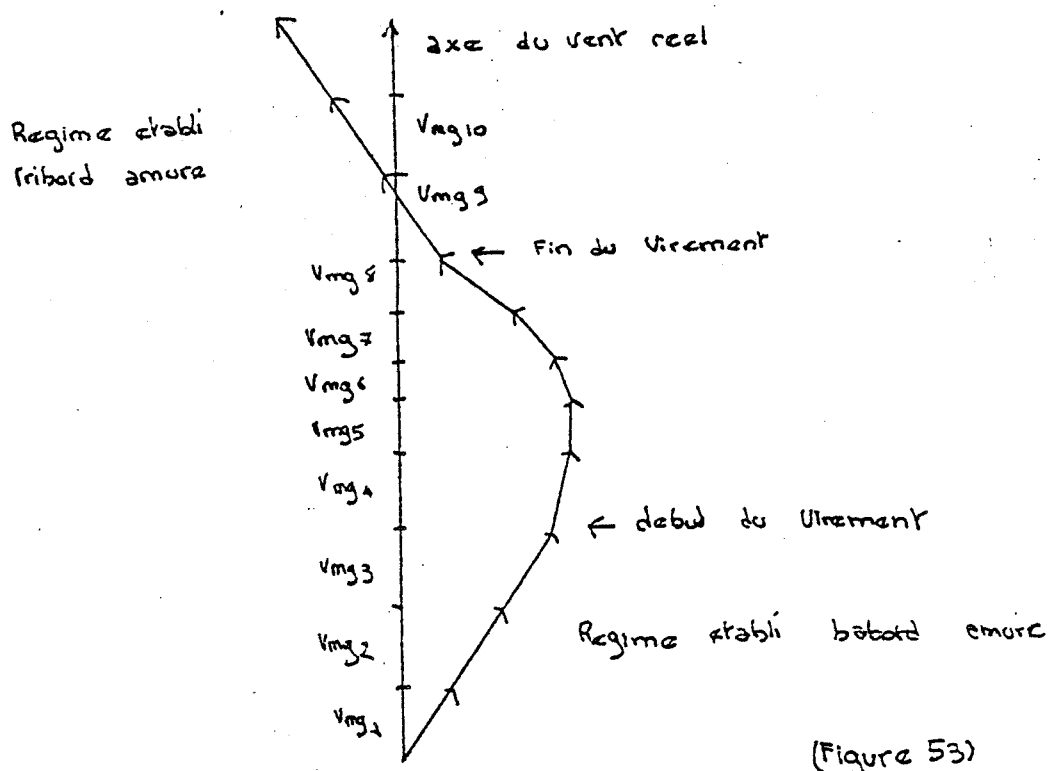 axe du vent reel
Regime etabli
tribord amure
Vmg10
Vmg9
← Fin du Virement
Vmg8
Vmg7
Vmg6
Vmg5
Vmg4
← debut du Virement
Vmg3
Regime etabli bâbord amure
Vmg2
Vmg1
(Figure 53)